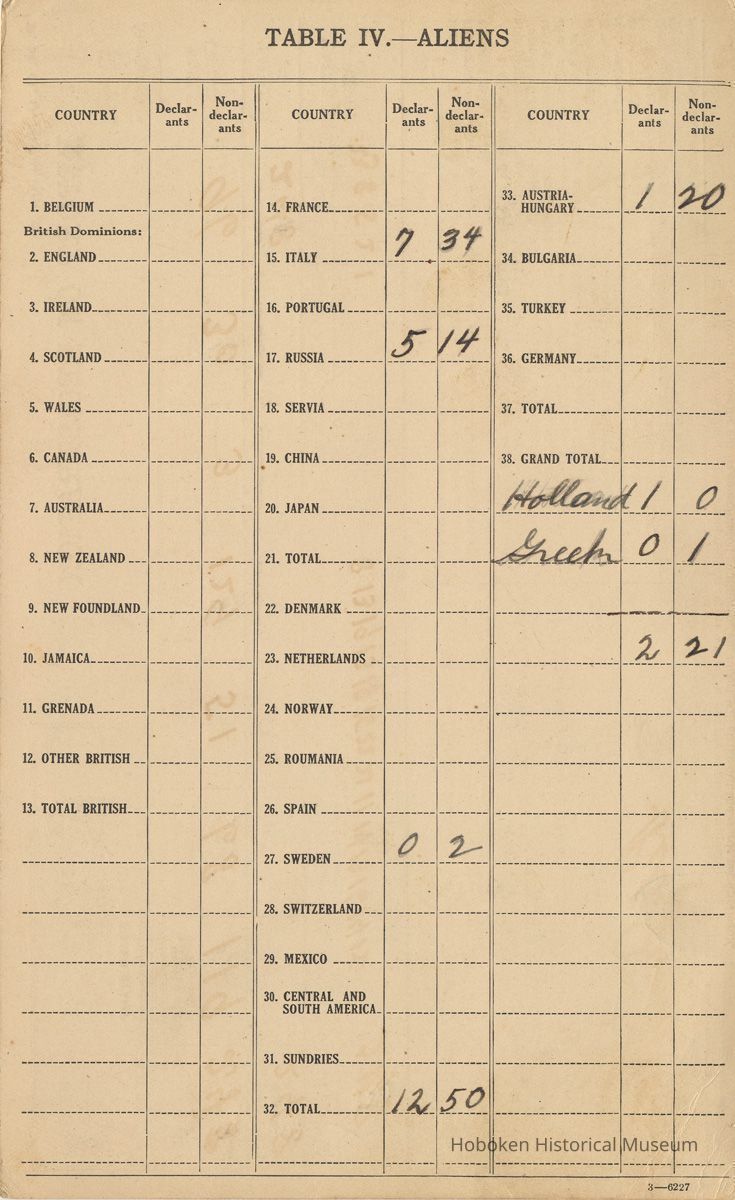 TABLE IV.—ALIENS
COUNTRY Declar-ants Non-declar-ants
1. BELGIUM
British Dominions:
2. ENGLAND
3. IRELAND
4. SCOTLAND
5. WALES
6. CANADA
7. AUSTRALIA
8. NEW ZEALAND
9. NEW FOUNDLAND
10. JAMAICA
11. GRENADA
12. OTHER BRITISH
13. TOTAL BRITISH
COUNTRY Declar-ants Non-declar-ants
14. FRANCE
15. ITALY 7 34
16. PORTUGAL
17. RUSSIA 5 14
18. SERVIA
19. CHINA
20. JAPAN
21. TOTAL
22. DENMARK
23. NETHERLANDS
24. NORWAY
25. ROUMANIA
26. SPAIN
27. SWEDEN 0 2
28. SWITZERLAND
29. MEXICO
30. CENTRAL AND
SOUTH AMERICA
31. SUNDRIES
32. TOTAL 12 50
COUNTRY Declar-ants Non-declar-ants
33. AUSTRIA-
HUNGARY 1 20
34. BULGARIA
35. TURKEY
36. GERMANY
37. TOTAL
38. GRAND TOTAL
Holland 1 0
Greek 0 1
2 21
Hoboken Historical Museum
3—6227